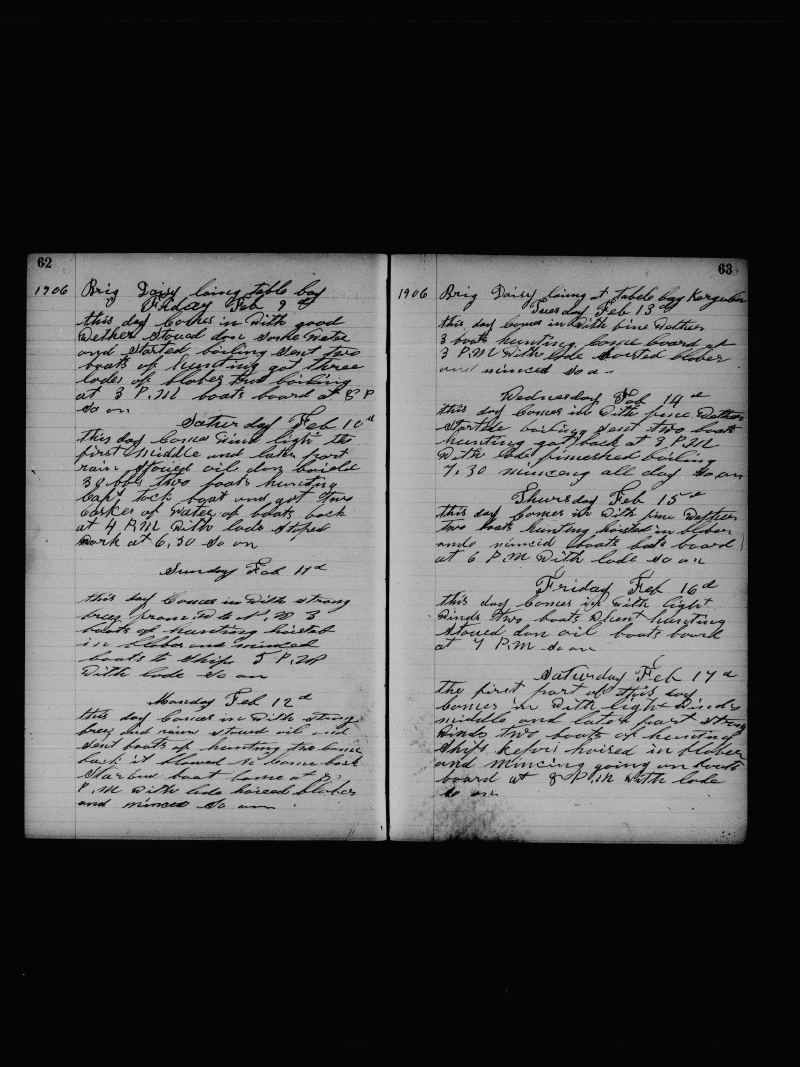 62
1906 Brig Daisy laing table bay
Friday Feb 9 th
this day Comes in With good
Wether Stoued don Some Water
and Started boiling Sent two
boats of hunting got three
lodes of blober boiling
at 3 P.M boats board at 8 P
So on
Satherday Feb 10 d
this day Comes light the
first Middle and later part
rain Stoued oil don
38 bbls two boats hunting
Capt tock boat and got two
Caskes of Water of boats back
at 4 P.M With lode Stoped
work at 6,30 So on
Sunday Feb 11 d
this day Comes in With strong
breeg from W to N. W 3
boats of hunting hoisted
in blober and minced
boats to Ship 5 P.M
With lode So on
Monday Feb 12 d
this day Comes in With strong
breeg and rain stoued oil and
Sent boats of hunting two Came
back it blowed So Came back
Starbow boat Came at 8
P.M With lode hoised blober
and minced So on
63
1906 Brig Daisy laing at table bay Kerguelen
Tuesday Feb 13 d
this day Comes in With fine Wether
3 boats hunting Came board at
3 P.M With lode hoisted blober
and minced So on
Wednesday Feb 14 d
this day Comes in With fine Wether
Started boiling Sent two boats
hunting got back at 3 P.M
With lode fineshed boiling
7.30 mincing all day So on
Thursday Feb 15 d
this day Comes in With fine Wether
two boats hunting hoisted in blober
and minced boats board
at 6 P.M With lode So on
Friday Feb 16 d
this day Comes in With light
Winds two boats Went hunting
Stoued don oil boats board
at 7 P.M So on
Saturday Feb 17 d
the first part of this day
Comes in With light Winds
middle and later part strong
Winds two boats of hunting
Ships hoised in blober
and mincing going on boats
board at 8 P.M With lode
So on